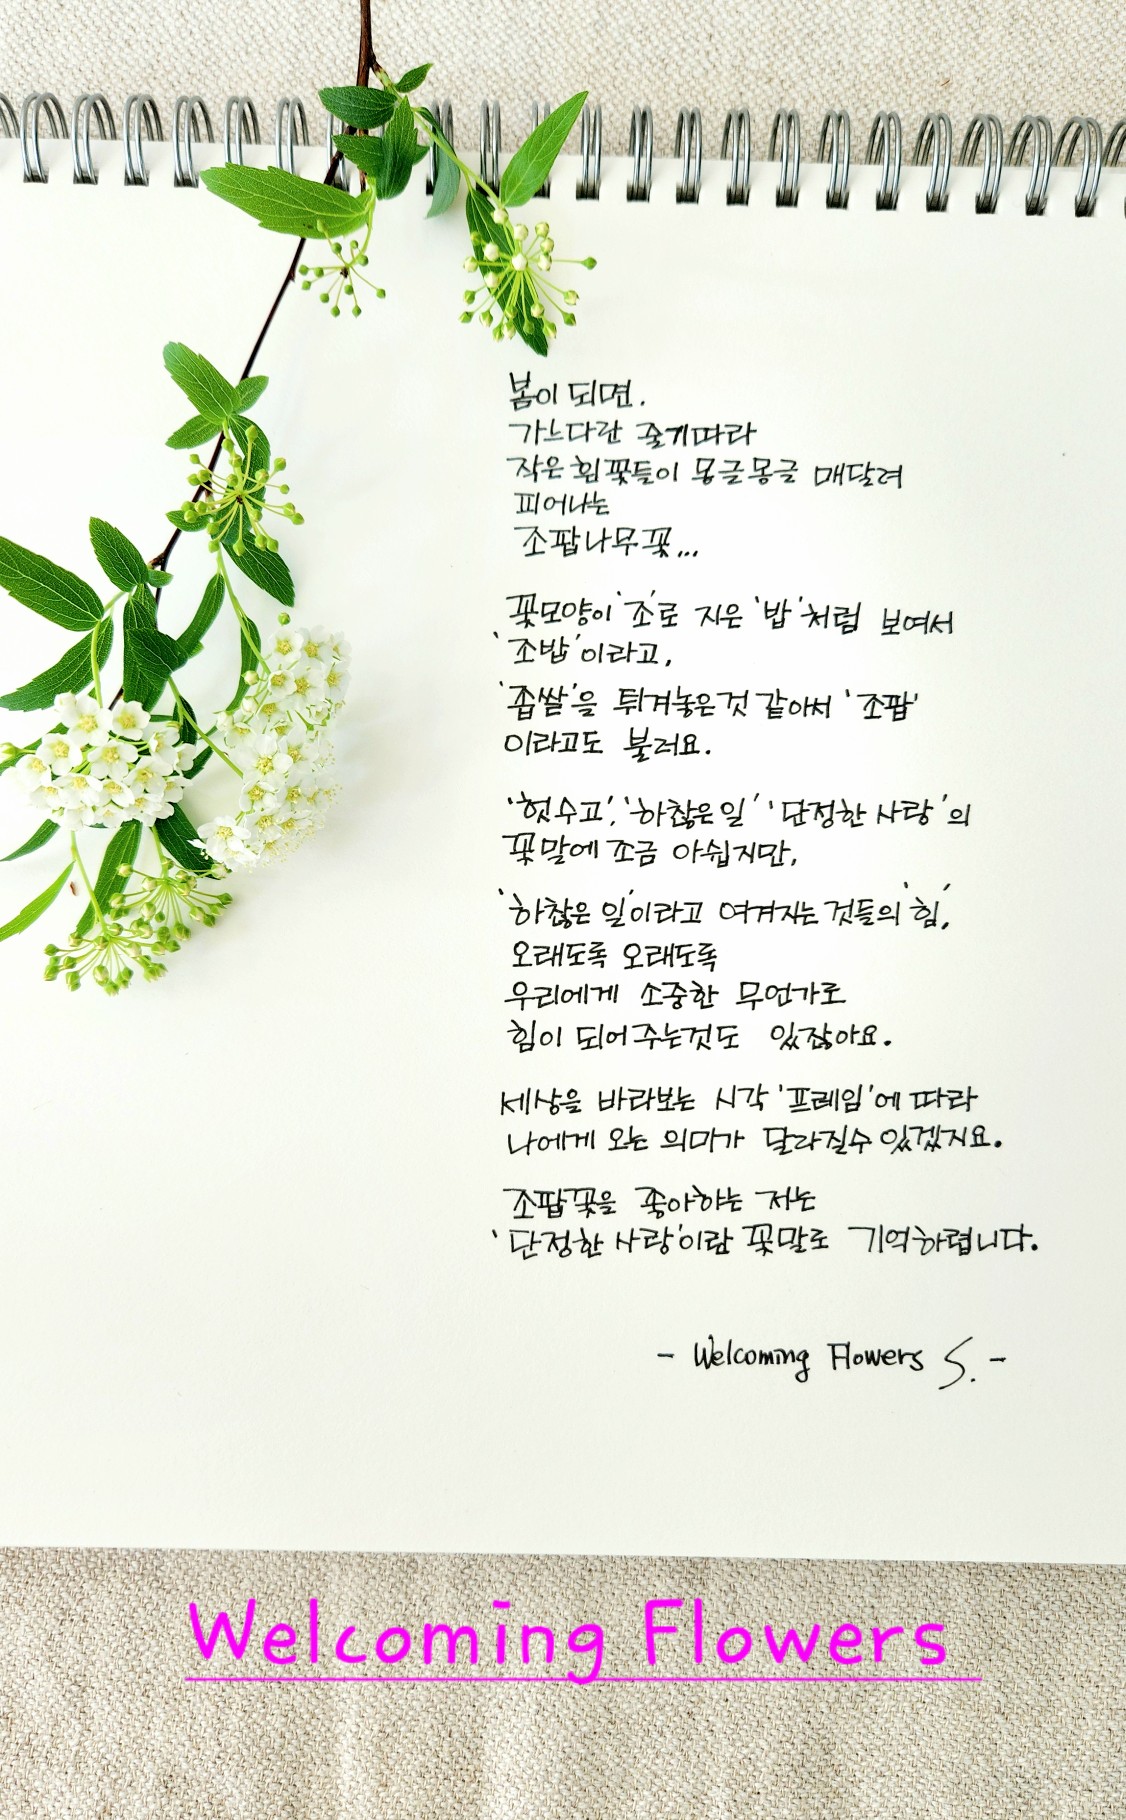 봄이 되면.
가느다란 줄기따라
작은 흰꽃들이 몽글몽글 매달려
피어나는
조팝나무꽃...
꽃모양이 '조'로 지은 '밥'처럼 보여서
'조밥'이라고,
'좁쌀'을 튀겨놓은것 같아서 '조팝'
이라고도 불러요.
'헛수고', '하찮은일' '단정한 사랑'의
꽃말에 조금 아쉽지만,
'하찮은 일'이라고 여겨지는 것들의 '힘',
오래도록 오래도록
우리에게 소중한 무언가로
힘이 되어주는것도 있잖아요.
세상을 바라보는 시각 '프레임'에 따라
나에게 오는 의미가 달라질수 있겠지요.
조팝꽃을 좋아하는 저는
'단정한 사랑'이람 꽃말로 기억하렵니다.
- Welcoming Flowers S. -
Welcoming Flowers